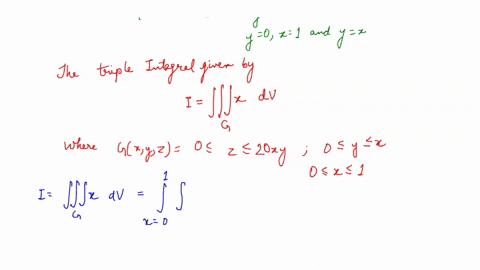 y=0, x=1 and y=x
The triple Integral given by
I = ∭_G x dV
Where G(x,y,z) = 0 ≤ z ≤ 20xy ; 0 ≤ y ≤ x
0 ≤ x ≤ 1
I = ∭_G x dV = ∫_{x=0}^{1} ∫